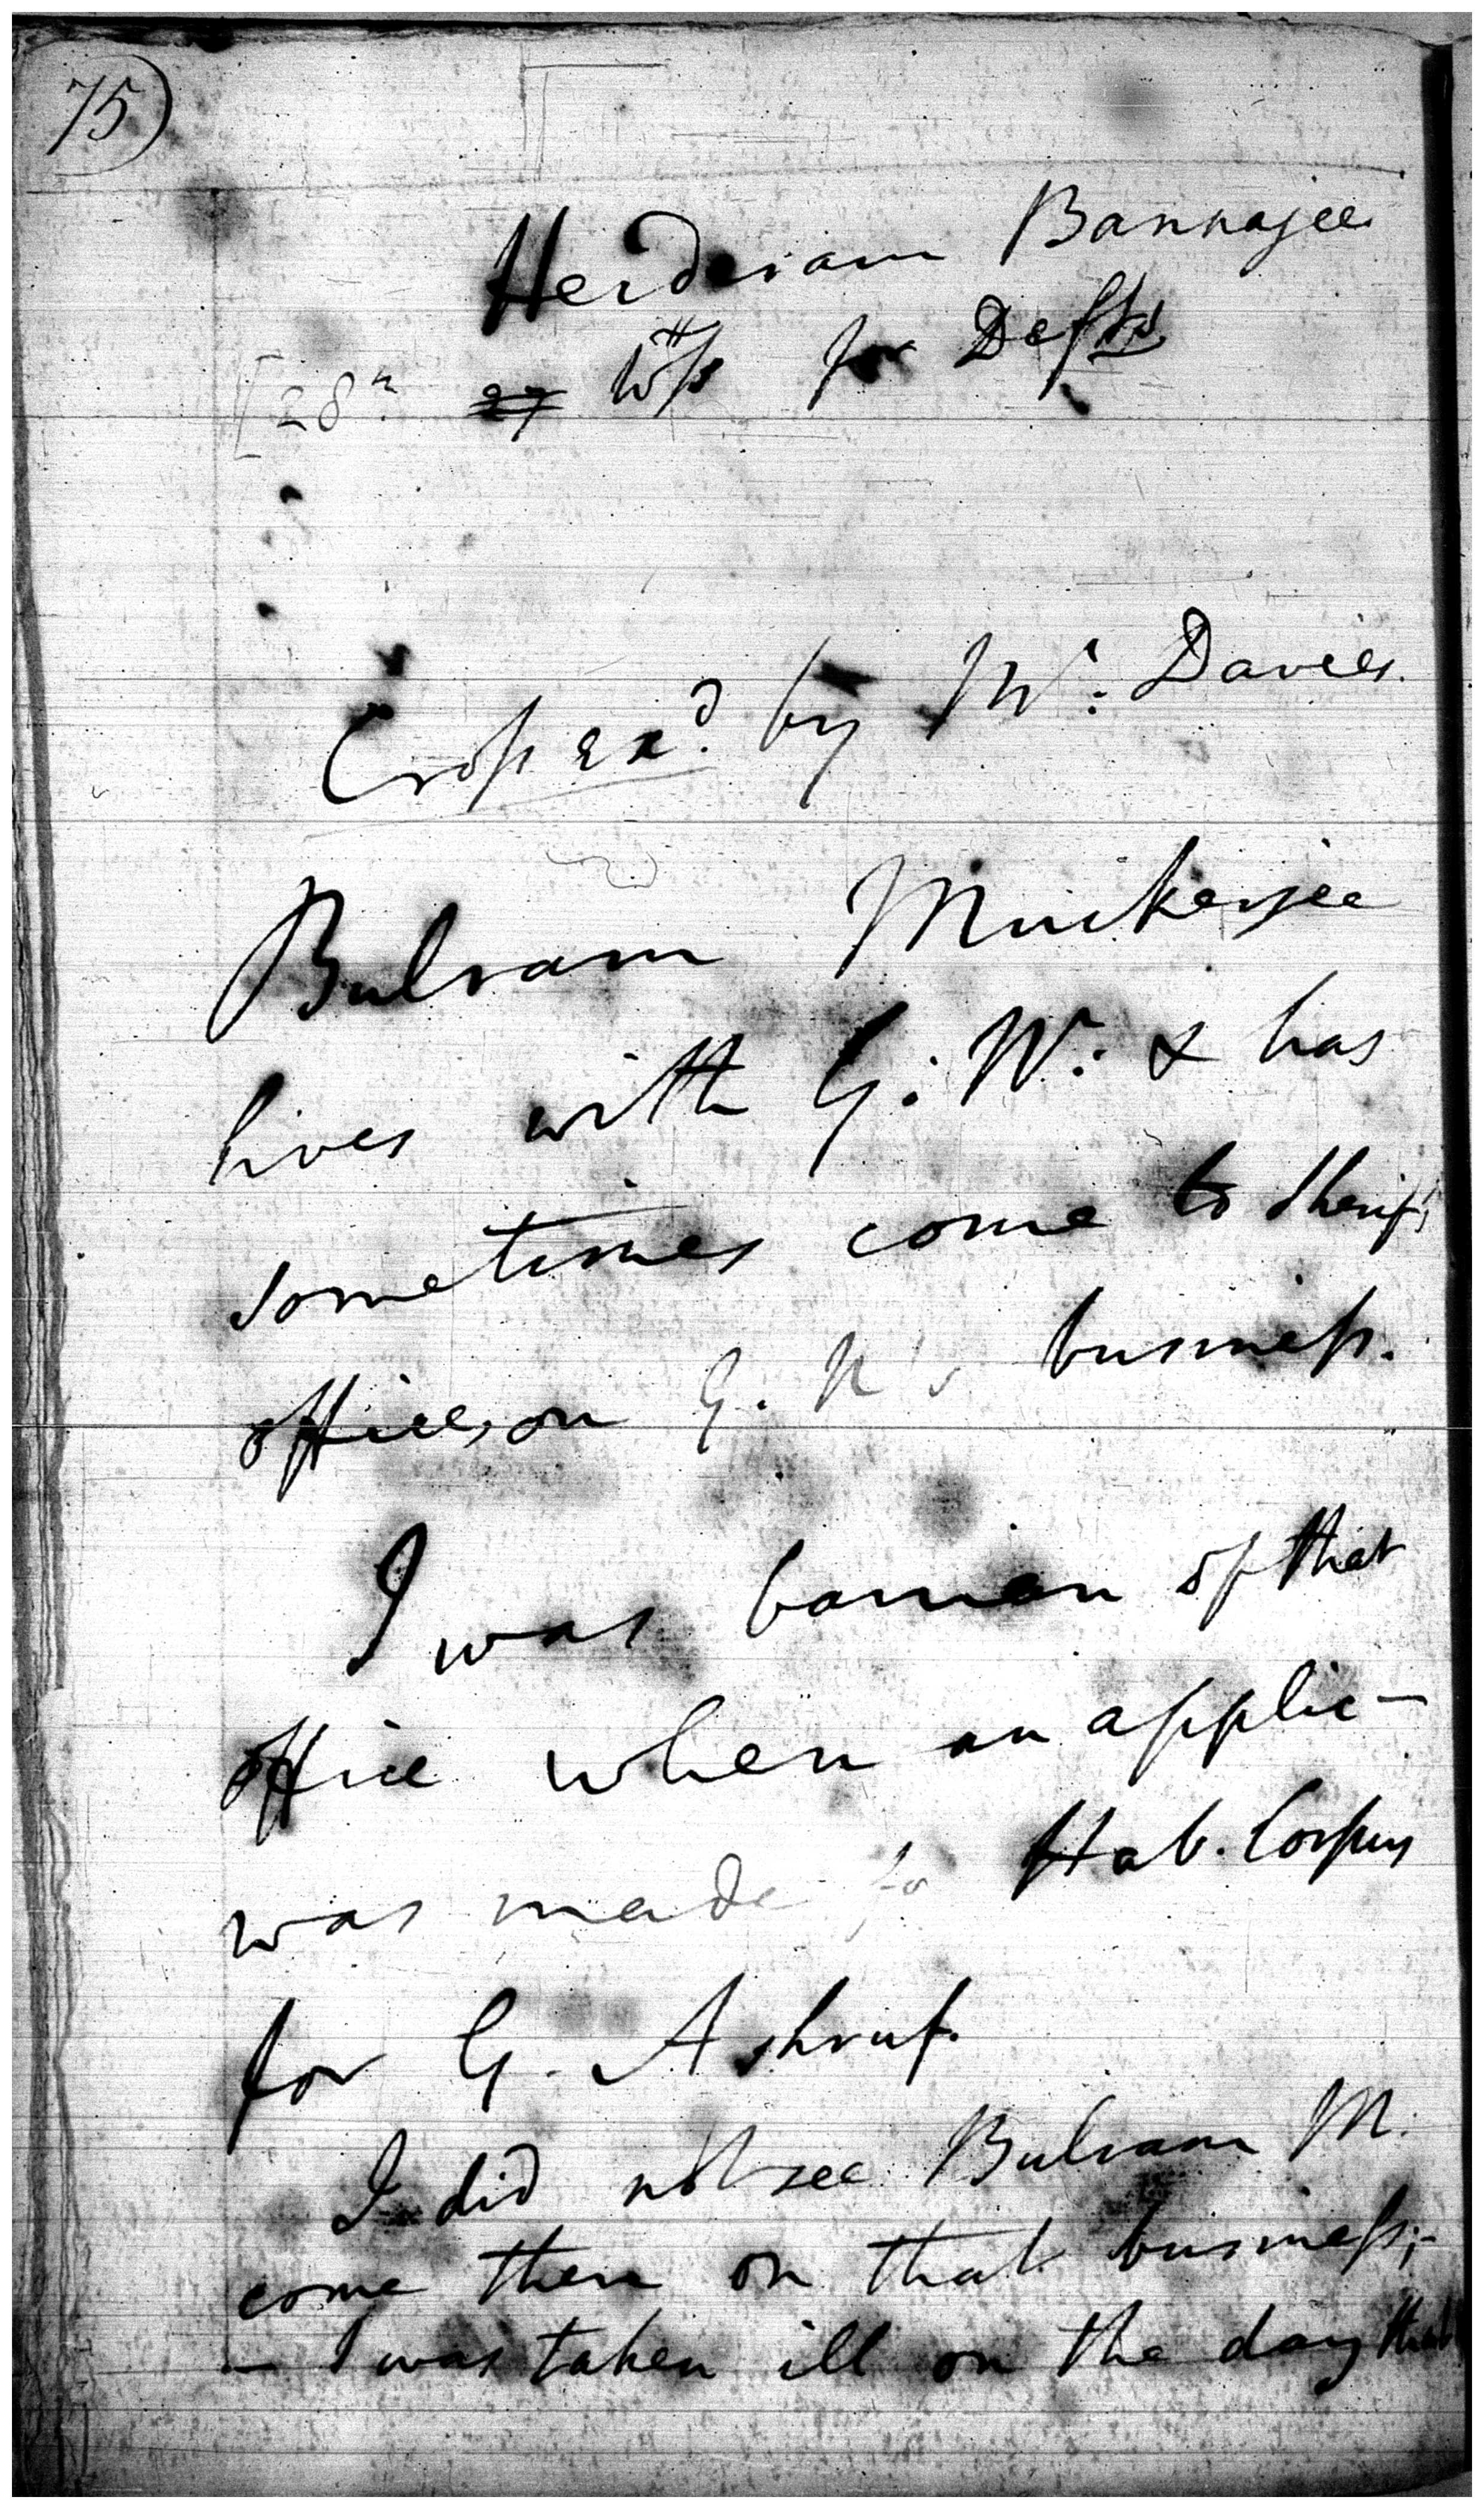 75)
Herderam Bannajee
[28th 27 Wss for Defts
Cross exd. by Mr. Davies.
Bulram Muckerjee
lives with G. W. & has
sometimes come to Sherifs
office, on G. W's business.
I was banian of that
office when an applic-
was made for Hab. Corpus
for G. Ashruf.
I did not see Bulram M.
come there on that business;-
- I was taken ill on the day that